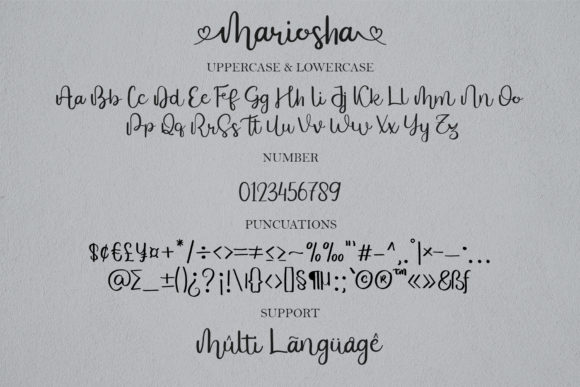 Mariosha
UPPERCASE & LOWERCASE
Aa Bb Cc Dd Ee Ff Gg Hh Ii Jj Kk Ll Mm Nn Oo
Pp Qq Rr Ss Tt Uu Vv Ww Xx Yy Zz
NUMBER
0123456789
PUNCUATIONS
$¢€£¥¤+*/÷<>=≠≤≥~%‰"'#-^,.°|×–—·…
@∑_±()¿?¡!\¦{}<>[]§¶µ:;`©®™«»&ßƒ
SUPPORT
Múlti Lãngüágê